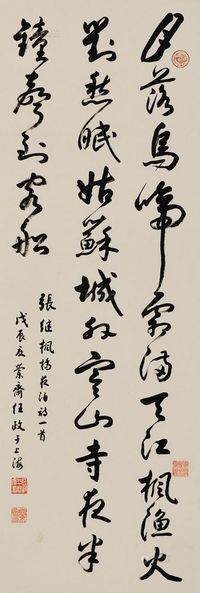 月落烏啼霜滿天江楓漁火
對愁眠姑蘇城外寒山寺夜半
鐘聲到客船
張繼楓橋夜泊詩一首
戊辰夏蘭齋任政于上海